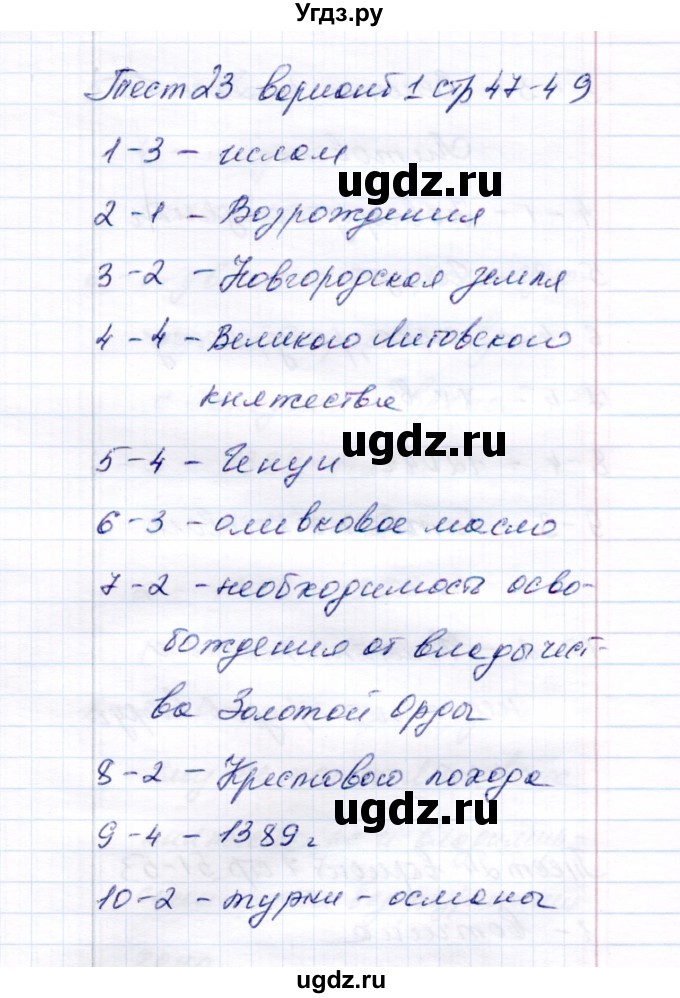 Угдз.ру
Тест 23 вариант 1 стр 47-49
1-3 - ислам
ugdz.ru
2-1 - Возрождения
3-2 - Новгородская земля
4-4 - Великого Литовского
княжества
ugdz.ru
5-4 - Генуи
6-3 - оливковое масло
7-2 - необходимость осво-
бождения от владычест-
ва Золотой Орды
8-2 - Крестового похода
ugdz.ru
9-4 - 1389г
10-2 - турки - османы
ugdz.ru